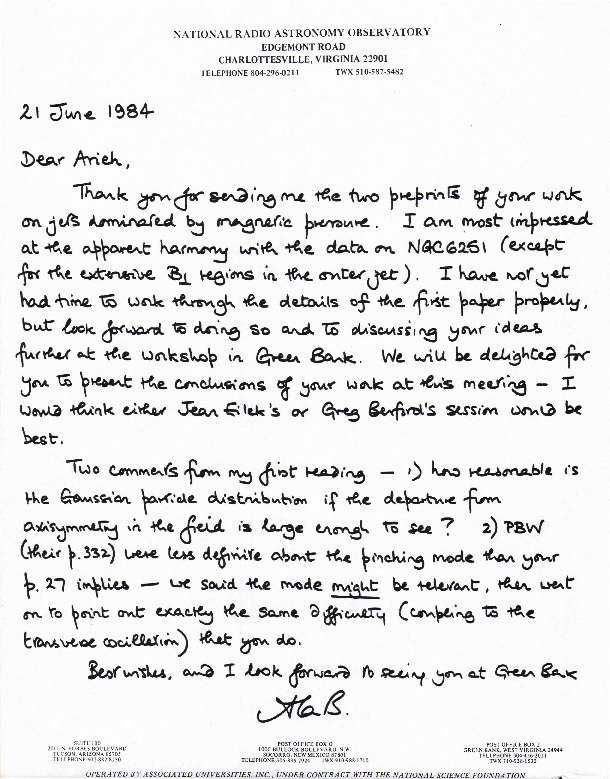 NATIONAL RADIO ASTRONOMY OBSERVATORY
EDGEMONT ROAD
CHARLOTTESVILLE, VIRGINIA 22901
TELEPHONE 804-296-0211 TWX 510-587-5482
21 June 1984
Dear Arieh,
Thank you for sending me the two preprints of your work
on jets dominated by magnetic pressure. I am most impressed
at the apparent harmony with the data on NGC6251 (except
for the extensive B⊥ regions in the outer jet). I have not yet
had time to work through the details of the first paper properly,
but look forward to doing so and to discussing your ideas
further at the workshop in Green Bank. We will be delighted for
you to present the conclusions of your work at this meeting – I
would think either Jean Eilek's or Greg Benford's session would be
best.
Two comments from my first reading – 1) how reasonable is
the Gaussian particle distribution if the departure from
axisymmetry in the field is large enough to see? 2) PBW
(their p.332) were less definite about the pinching mode than your
p. 27 implies – we said the mode might be relevant, then went
on to point out exactly the same difficulty (coupling to the
transverse oscillation) that you do.
Best wishes, and I look forward to seeing you at Green Bank
SUITE 100
FORBES BOULEVARD
TUCSON, ARIZONA 85705
TELEPHONE 602-882-8250
POST OFFICE BOX O
1000 BULLOCK BOULEVARD, N.W.
SOCORRO, NEW MEXICO 87801
TELEPHONE TWX 910-988-1710
POST OFFICE BOX 2
GREEN BANK, WEST VIRGINIA 24944
TELEPHONE 304-456-2011
TWX 710-938-1530
OPERATED BY ASSOCIATED UNIVERSITIES, INC., UNDER CONTRACT WITH THE NATIONAL SCIENCE FOUNDATION